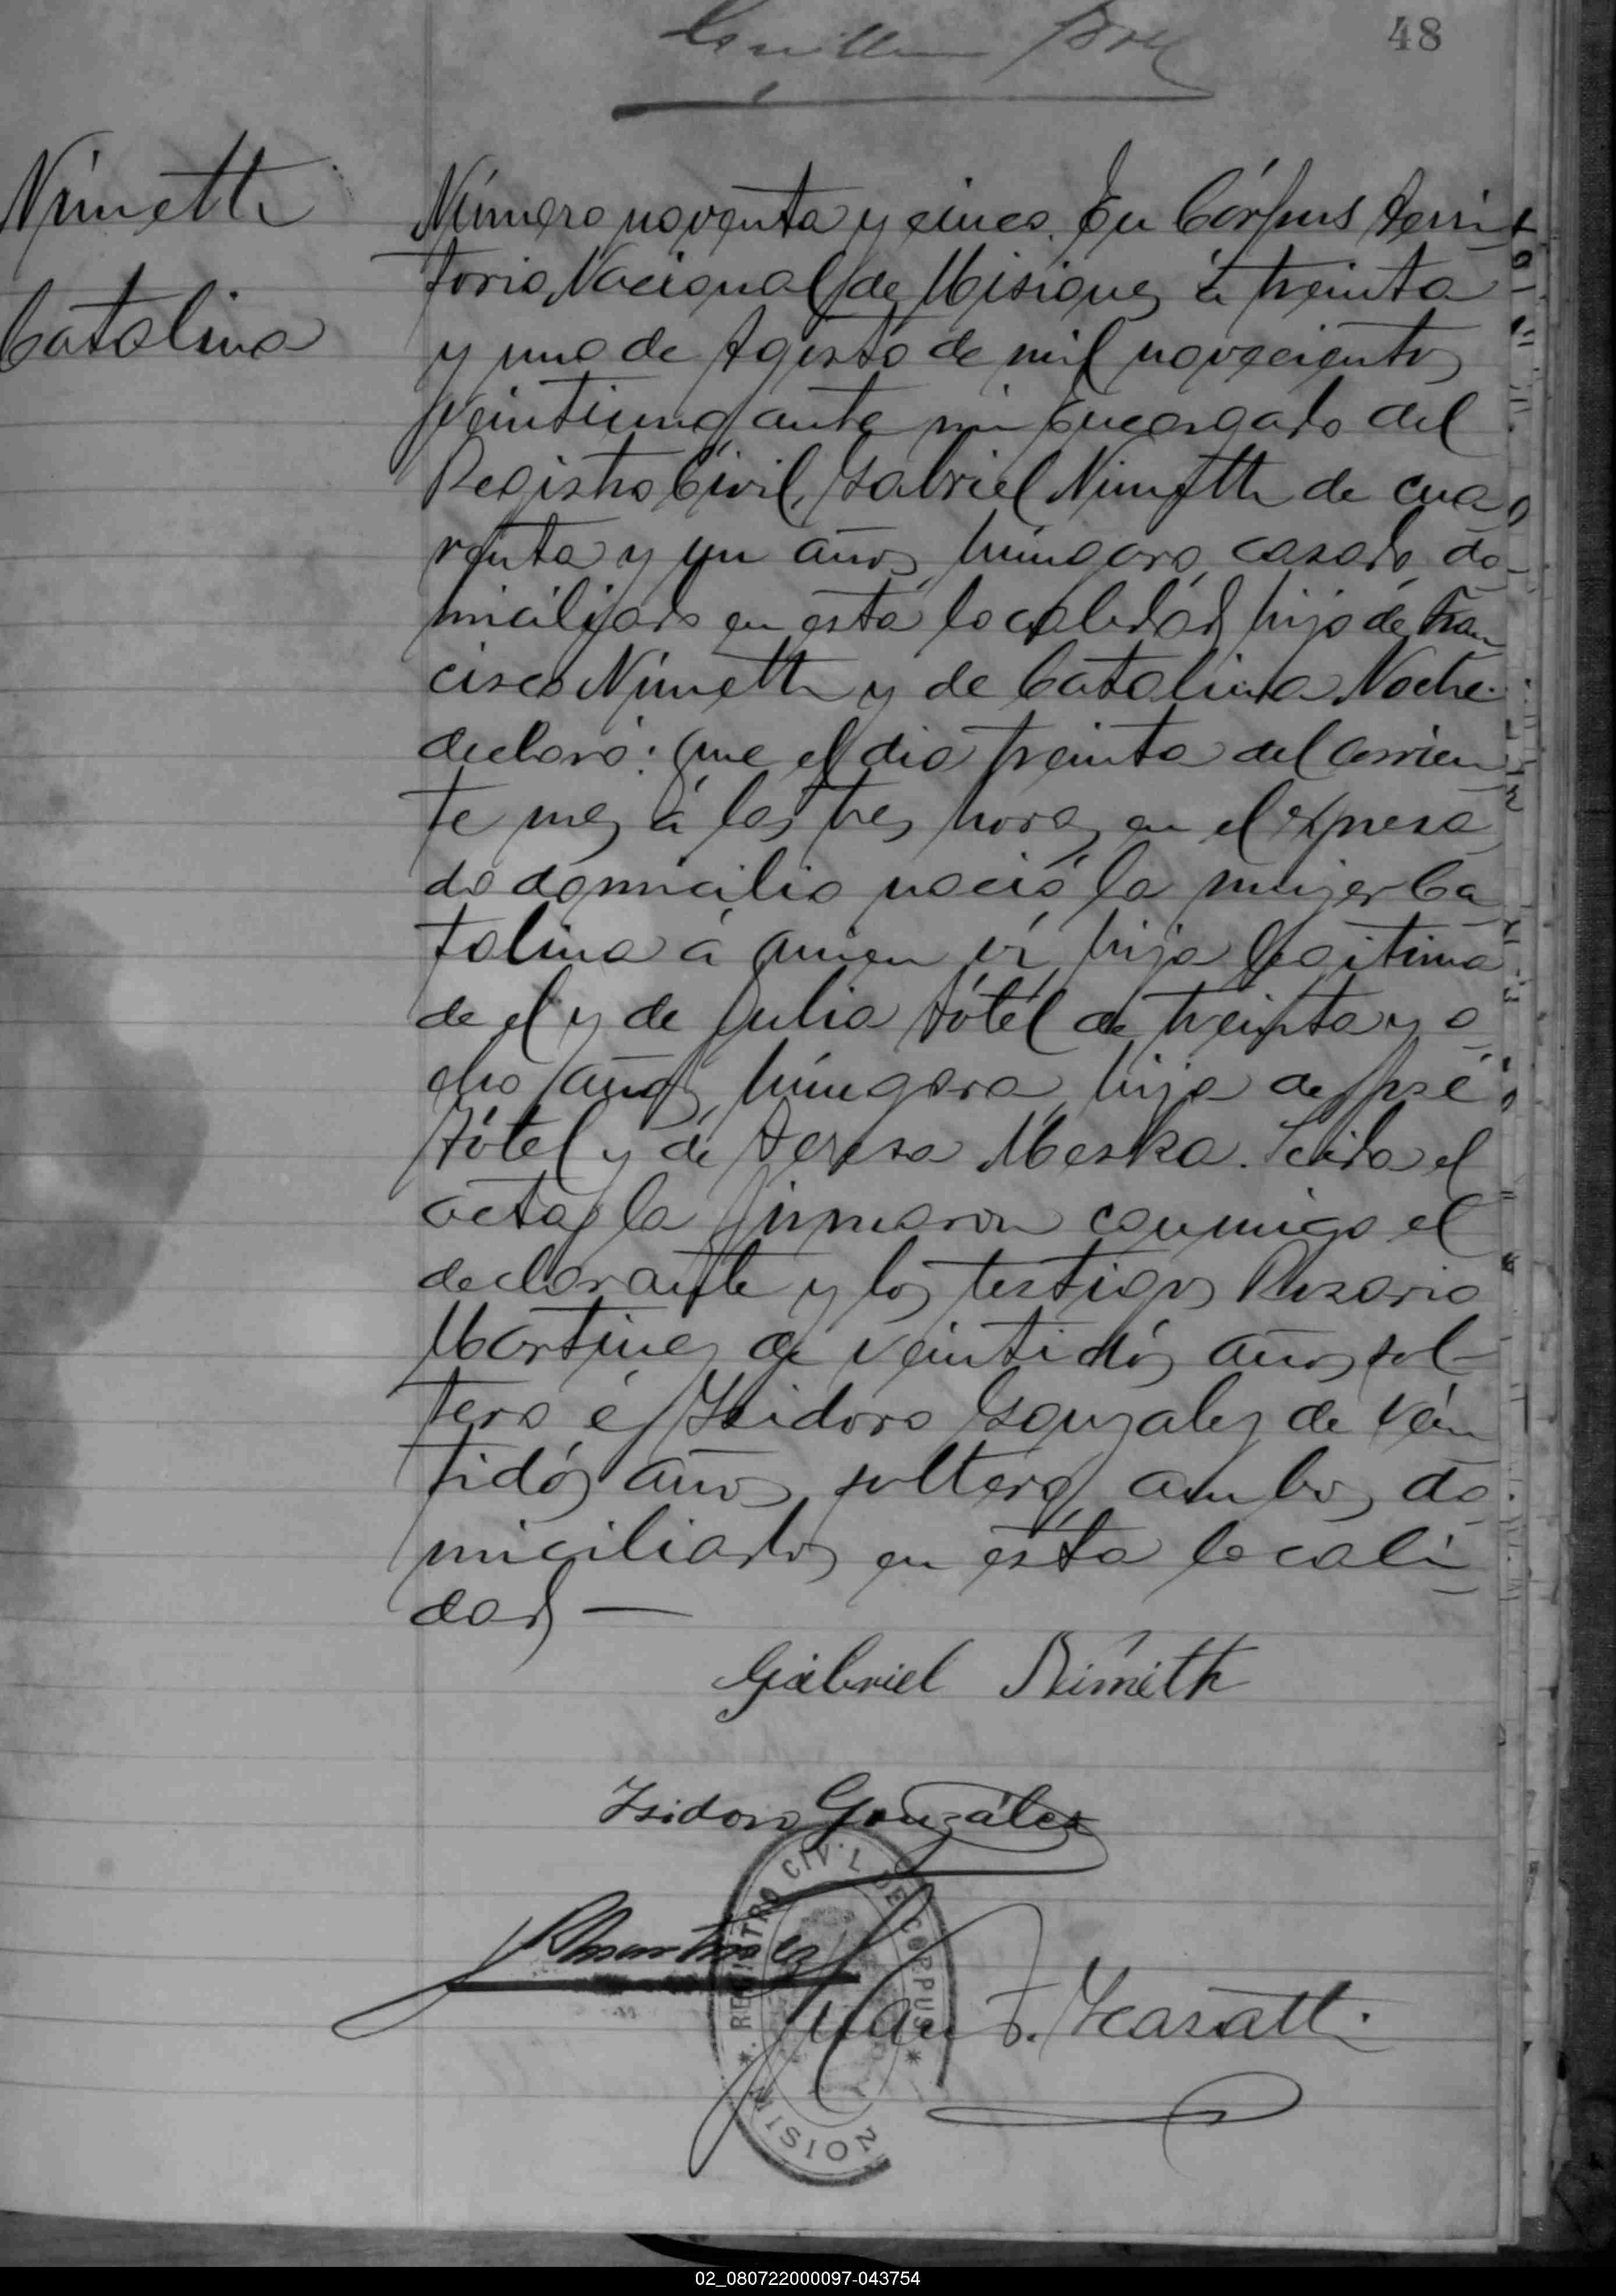 48
Nimeth
Catalina
Número noventa y cinco. En Córpus terri-
torio Nacional de Misiones á treinta
y uno de Agosto de mil novecientos
veintiuno, ante mi Encargado del
Registro Civil, Gabriel Nimeth de cua
renta y un años, húngaro, casado, do-
miciliado en ésta localidad, hijo de Fran
cisco Nimeth y de Catalina
declaró: Que el dia treinta del corrien
te mes á las tres horas en el expresa
do domicilio nació la mujer Ca
talina á quien ví, hija legitima
de el y de Julia Tótel de treinta y o
cho años, húngara, hija de José
Tótel y de Teresa Meska. Leida el
acta, la firmaron conmigo el
declarante y los testigos Rosario
Martinez de veintidós años, sol-
tero é Isidoro Gonzalez de vein
tidós años, soltero, ambos do
miciliados en ésta locali
dad —
Gabriel Nimeth
Isidoro González
RMartinez
Juan F.
REGISTRO CIVIL DE CORPUS
* MISIONES *
02_080722000097-043754